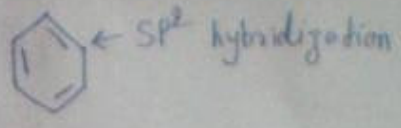 ← SP² hybridization